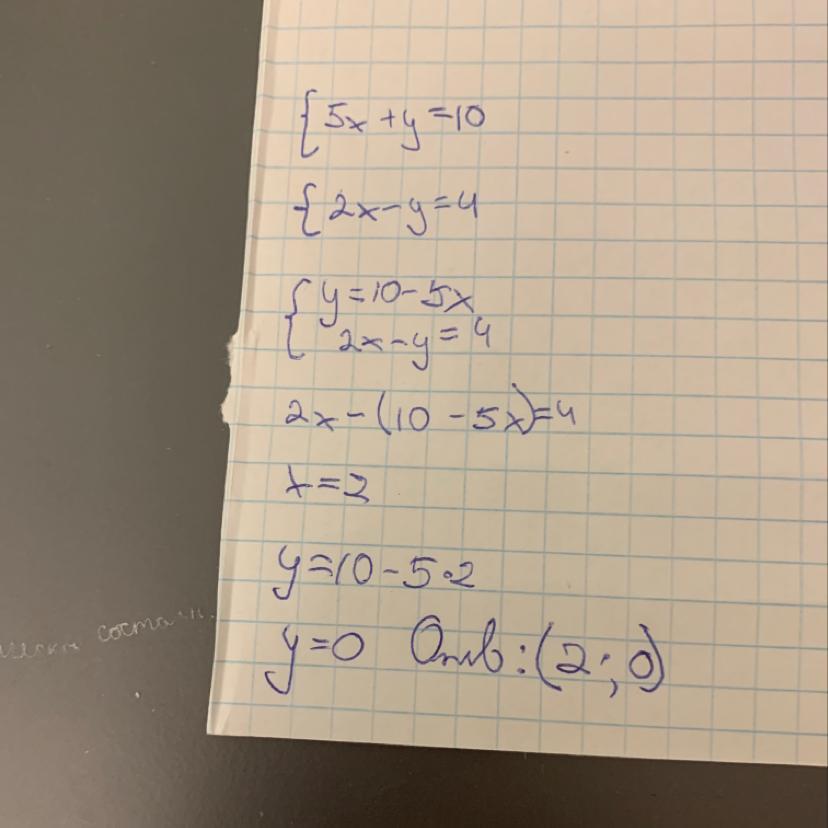 {5x+y=10
{2x-y=4
{y=10-5x
2x-y=4
2x-(10-5x)=4
x=2
y=10-5·2
y=0 Отв:(2;0)